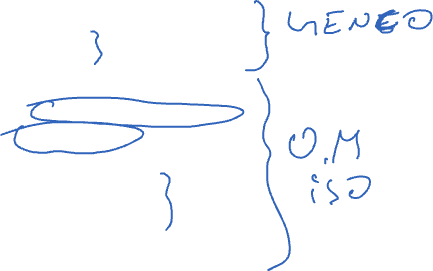 GENEO
O.M
iSO